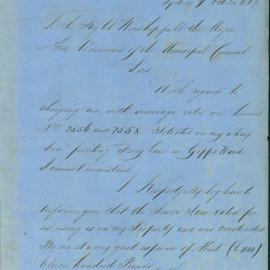 Sydney 9
To the Right Worshipfull the Mayor
Aldermen of the Municipal Council
Sirs
With regard to
charging me with sewerage rates on houses
No 7556 and 7558 situated on my wharf
and fronting Ferry lane in Gipps Ward
I cannot understand
I Respectfully beg leave to
inform you that the Sewer I am rated for
as using is on my Property and was constructed
By me at a very great expense of About
Eleven hundred Pounds